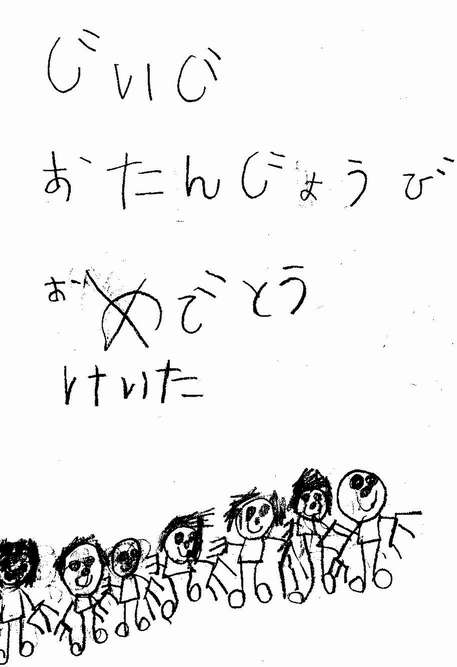 じいじ
おたんじょうび
おめでとう
けいた